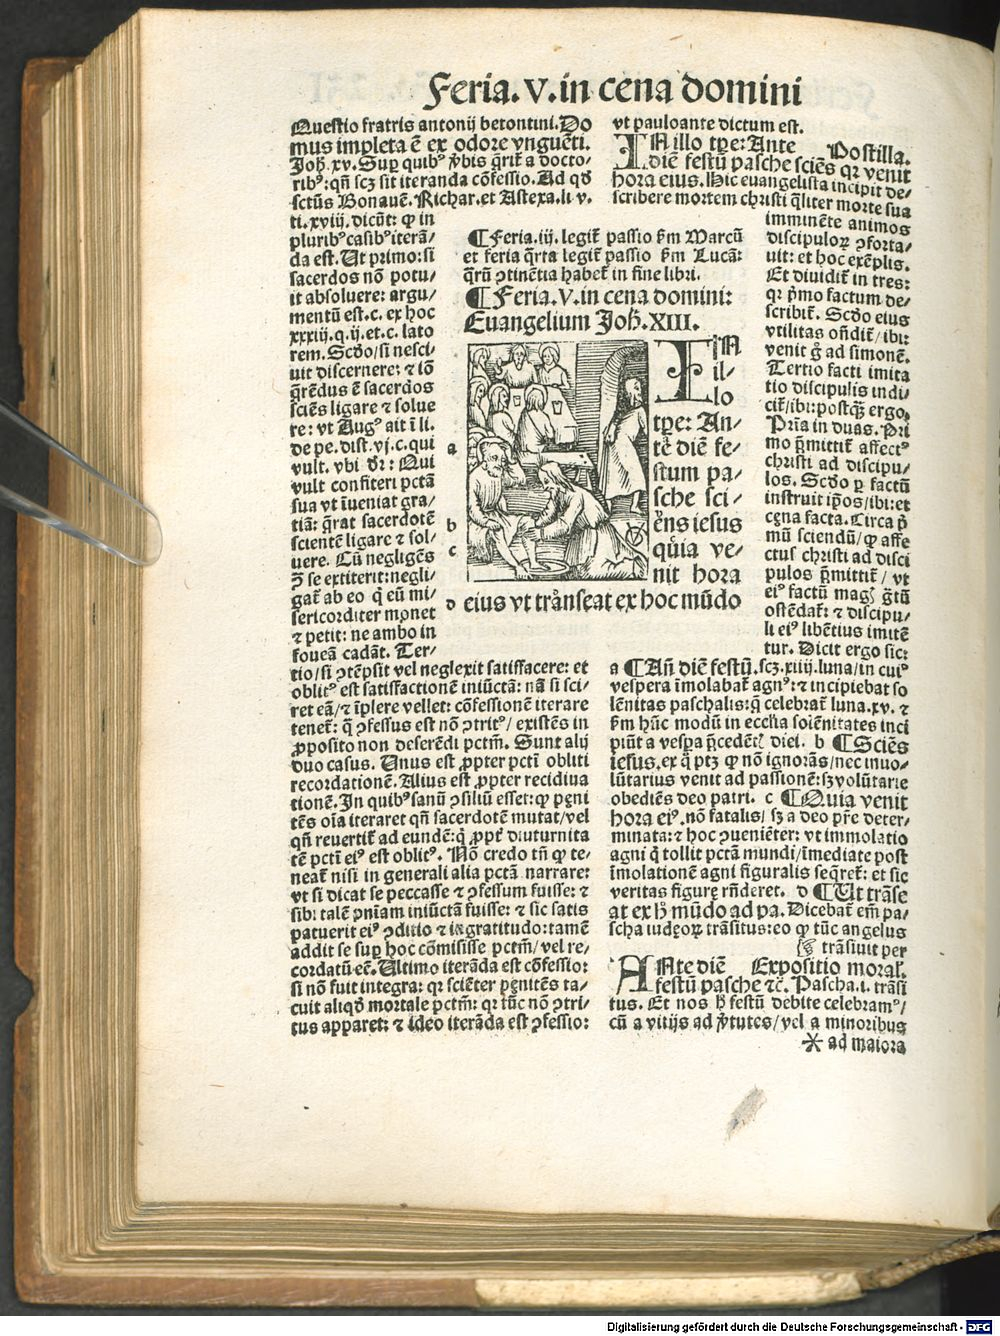 Feria. V. in cena domini
Questio fratris antonij betontini. Do
mus impleta ē ex odore vnguēti.
Joh. xv. Sup quibꝰ v̄bis q̄rit̄ a docto-
ribꝰ: qn̄ scꝫ sit iteranda cōfessio. Ad qd̄
sctūs Bonauē. Richar. et Astexa. li v.
ti. xviij. dicūt: ꝙ in
pluribꝰ casibꝰ iterā/
da est. Ut primo: si
sacerdos nō potu/
it absoluere: argu/
mentū est. c. ex hoc
xxxiij. q. ij. et. c. lato
rem. Scd̄o/ si nesci/
uit discernere: ⁊ iō
q̄rēdus ē sacerdos
sciēs ligare ⁊ solue
re: vt Augꝰ ait ī li.
de pe. dist. vj. c. qui
vult. vbi dr̄: Qui
vult confiteri pctā
sua vt īueniat gra/
tiā: q̄rat sacerdotē
scientē ligare ⁊ sol/
uere. Cū negligēs
se extiterit: negli/
gat̄ ab eo q̄ eū mi/
sericorditer monet
⁊ petit: ne ambo in
foueā cadāt. Ter/
tio/ si ꝯtēpsit vel neglexit satisfacere: et
oblitꝰ est satisfactionē iniūctā: nā si sci/
ret eā/ ⁊ īplere vellet: cōfessionē iterare
tenet̄: q̄ ꝯfessus est nō ꝯtritꝰ/ existēs in
ꝓposito non deserēdi pctm̄. Sunt alij
duo casus. Unus est ꝓpter pctī obliti
recordationē. Alius est ꝓpter recidiua
tionē. In quibꝰ sanū ꝯsiliū esset: ꝙ pęni
tēs oīa iteraret qn̄ sacerdotē mutat/ vel
qn̄ reuertit̄ ad eundē: q̄ ꝓpt̄ diuturnita
tē pctī eiꝰ est oblitꝰ. Nō credo tn̄ ꝙ te/
neat̄ nisi in generali alia pctā narrare:
vt si dicat se peccasse ⁊ ꝯfessum fuisse: ⁊
sibi talē pniam iniūctā fuisse: ⁊ sic satis
patuerit eiꝰ ꝯditio ⁊ ingratitudo: tamē
addit se sup hoc cōmisisse pctm̄/ vel re/
cordatū eē. Ultimo iterāda est cōfessio:
si nō fuit integra: qr sciēter pęnitēs ta/
cuit aliqd̄ mortale pctm̄: qr tūc nō ꝯtri/
tus apparet: ⁊ ideo iterāda est ꝯfessio:
vt paulo ante dictum est.
Postilla.
IN illo tpe: Ante
diē festū pasche sciēs qr venit
hora eius. Hic euangelista incipit de-
scribere mortem christi qliter morte sua
imminēte animos
discipuloꝝ ꝯforta/
uit: et hoc exēplis.
Et diuidit̄ in tres:
qr p̄mo factum de/
scribit̄. Scd̄o eius
vtilitas oñdit̄/ ibi:
venit ḡ ad simonē.
Tertio facti imita
tio discipulis indi/
cit̄/ ibi: postqꝫ ergo.
Pria in duas. Pri
mo p̄mittit̄ affectꝰ
christi ad discipu/
los. Scd̄o p factū
instruit ip̄os/ ibi: et
cęna facta. Circa p̄
mū sciendū/ ꝙ affe
ctus christi ad disci
pulos p̄mittit̄/ vt
eiꝰ factū maḡ gtū
ostēdat̄: ⁊ discipu/
li eiꝰ libētius imitē
tur. Dicit ergo sic:
¶ Feria. iij. legit̄ passio s̄m Marcū
et feria q̄rta legit̄ passio s̄m Lucā:
q̄rū ꝯtinētia habet̄ in fine libri.
¶ Feria. V. in cena domini:
Euangelium Joh. XIII.
IN
il-
lo
tpe: An-
a tē diē fe-
stum pa-
sche sci-
b ēns iesus
c quia ve-
nit hora
d eius vt trāseat ex hoc mūdo
a ¶ Añ diē festū. scꝫ. xiiij. luna/ in cuiꝰ
vespera īmolabat̄ agnꝰ: ⁊ incipiebat so
lēnitas paschalis: q̄ celebrat̄ luna. xv. ⁊
s̄m hūc modū in ecclīa solēnitates inci
piūt a vespa p̄cedēt̄ diei. b ¶ Sciēs
iesus. ex q̄ ptꝫ ꝙ nō ignorās/ nec inuo-
lūtarius venit ad passionē: sꝫ volūtarie
obediēs deo patri. c ¶ Quia venit
hora eiꝰ. nō fatalis/ sꝫ a deo pr̄e deter-
minata: ⁊ hoc ꝯueniēter: vt immolatio
agni q̄ tollit pctā mundi/ īmediate post
īmolationē agni figuralis seq̄ret̄: et sic
veritas figurę rn̄deret. d ¶ Ut trāse
at ex h̄ mūdo ad pa. Dicebat̄ em̄ pa/
scha iudęoꝝ trāsitus: eo ꝙ tūc angelus
☞ trāsiuit per
Expositio moral̄.
ANte diē
festū pasche ⁊c̄. Pascha. i. trāsi
tus. Et nos h̄ festū debite celebramꝰ/
cū a vitijs ad v̄tutes/ vel a minoribus
* ad maiora
Digitalisierung gefördert durch die Deutsche Forschungsgemeinschaft - DFG